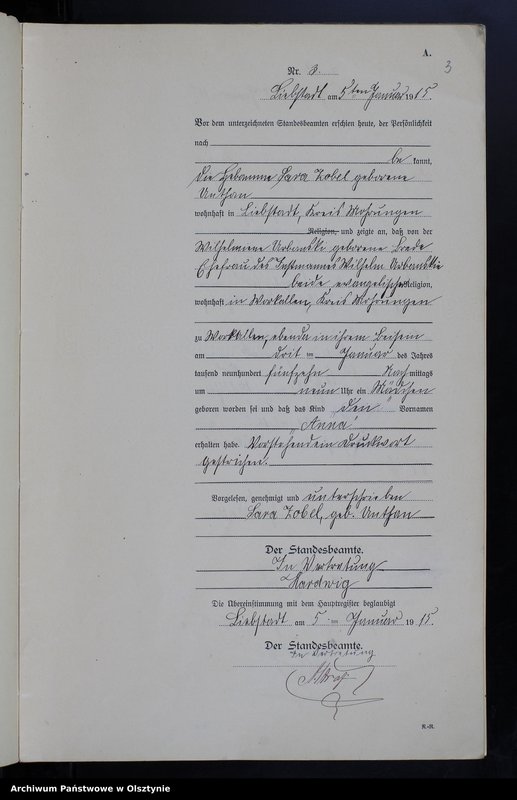 A.
3
Nr. 3.
Liebstadt am 5ten Januar 1915.
Vor dem unterzeichneten Standesbeamten erschien heute, der Persönlichkeit
nach
be kannt,
die Hebamme Sara Zobel geborene
Unthan
wohnhaft in Liebstadt, Kreis Mohrungen
Religion, und zeigte an, daß von der
Wilhelmine Urbanski geborene
Ehefrau des Instmannes Wilhelm Urbanski
beide evangelischer Religion,
wohnhaft in Workallen, Kreis Mohrungen
zu Workallen, ebenda in ihrem Beisein
am drit en Januar des Jahres
tausend neunhundert fünfzehn Nach mittags
um neun Uhr ein Mädchen
geboren worden sei und daß das Kind den Vornamen
"Anna"
erhalten habe. Vorstehend ein Druckwort
gestrichen.
Vorgelesen, genehmigt und unterschrieben
Sara Zobel, geb. Unthan
Der Standesbeamte.
In Vertretung
Hardwig
Die Übereinstimmung mit dem Hauptregister beglaubigt
Liebstadt am 5ten Januar 1915.
Der Standesbeamte.
In Vertretung
R.-R.
Archiwum Państwowe w Olsztynie